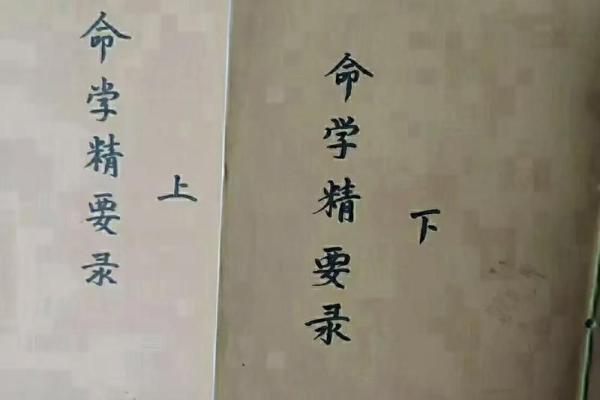 命学精要录
上
命学精要录
下